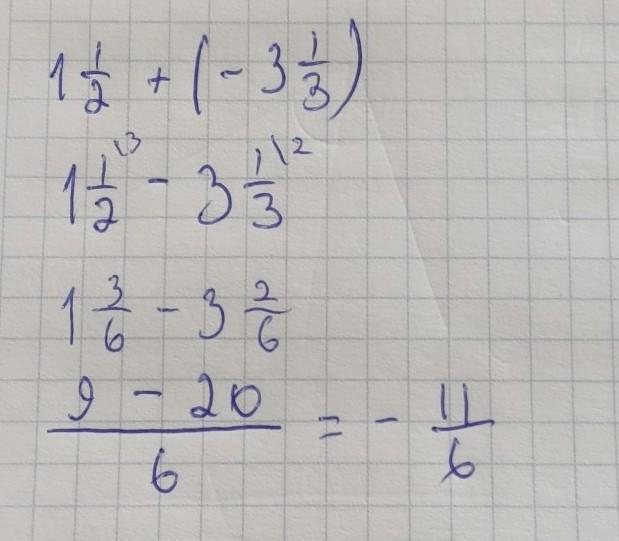 1 1/2 + (- 3 1/3)
1 1/2 \3 - 3 1/3 \2
1 3/6 - 3 2/6
9 - 20 / 6 = - 11/6